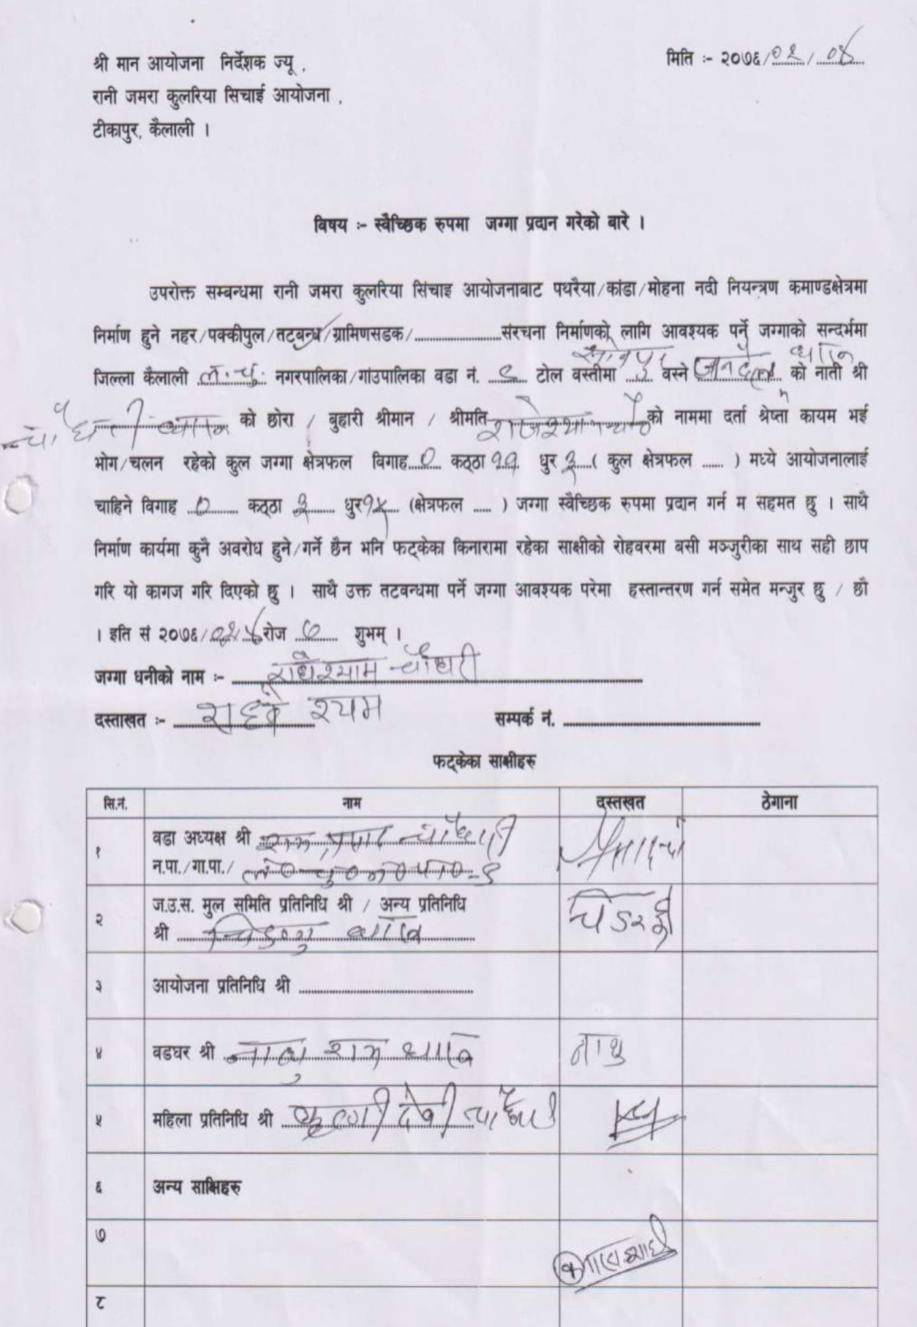 श्री मान आयोजना निर्देशक ज्यू ,
मिति :- २०७६/०२/०४
रानी जमरा कुलरिया सिचाई आयोजना ,
टीकापुर, कैलाली ।
विषय :- स्वैच्छिक रुपमा जग्गा प्रदान गरेको बारे ।
उपरोक्त सम्बन्धमा रानी जमरा कुलरिया सिंचाइ आयोजनाबाट पथरैया/कांडा/मोहना नदी नियन्त्रण कमाण्डक्षेत्रमा
निर्माण हुने नहर/पक्कीपुल/तटबन्ध/ग्रामिणसडक/....................संरचना निर्माणको लागि आवश्यक पर्ने जग्गाको सन्दर्भमा
जिल्ला कैलाली ल.चु. नगरपालिका/गांउपालिका वडा नं. ९ टोल वस्तीमा वस्ने को नाती श्री
चौधरी को छोरा / बुहारी श्रीमान / श्रीमति को नाममा दर्ता श्रेष्ता कायम भई
भोग/चलन रहेको कुल जग्गा क्षेत्रफल विगाह ० कठ्ठा ११ धुर ३ ( कुल क्षेत्रफल ...... ) मध्ये आयोजनालाई
चाहिने विगाह ० कठ्ठा धुर (क्षेत्रफल ..... ) जग्गा स्वैच्छिक रुपमा प्रदान गर्न म सहमत छु । साथै
निर्माण कार्यमा कुनै अवरोध हुने/गर्ने छैन भनि फट्केका किनारामा रहेका साक्षीको रोहवरमा बसी मञ्जुरीका साथ सही छाप
गरि यो कागज गरि दिएको छु । साथै उक्त तटवन्धमा पर्ने जग्गा आवश्यक परेमा हस्तान्तरण गर्न समेत मन्जुर छु / छौ
। इति सं २०७६/०२/ रोज ७ शुभम् ।
जग्गा धनीको नाम :- राधेश्याम चौधरी
दस्ताखत :- सम्पर्क नं. ....................
फट्केका साक्षीहरु
सि.नं. नाम दस्तखत ठेगाना
१ वडा अध्यक्ष श्री प्रसाद चौधरी
न.पा./गा.पा./ ल० चु० न० पा०-९
२ ज.उ.स. मुल समिति प्रतिनिधि श्री / अन्य प्रतिनिधि
श्री
३ आयोजना प्रतिनिधि श्री ....................
४ वडघर श्री राम नाथु
५ महिला प्रतिनिधि श्री देवी चौधरी
६ अन्य साक्षिहरु
७
८